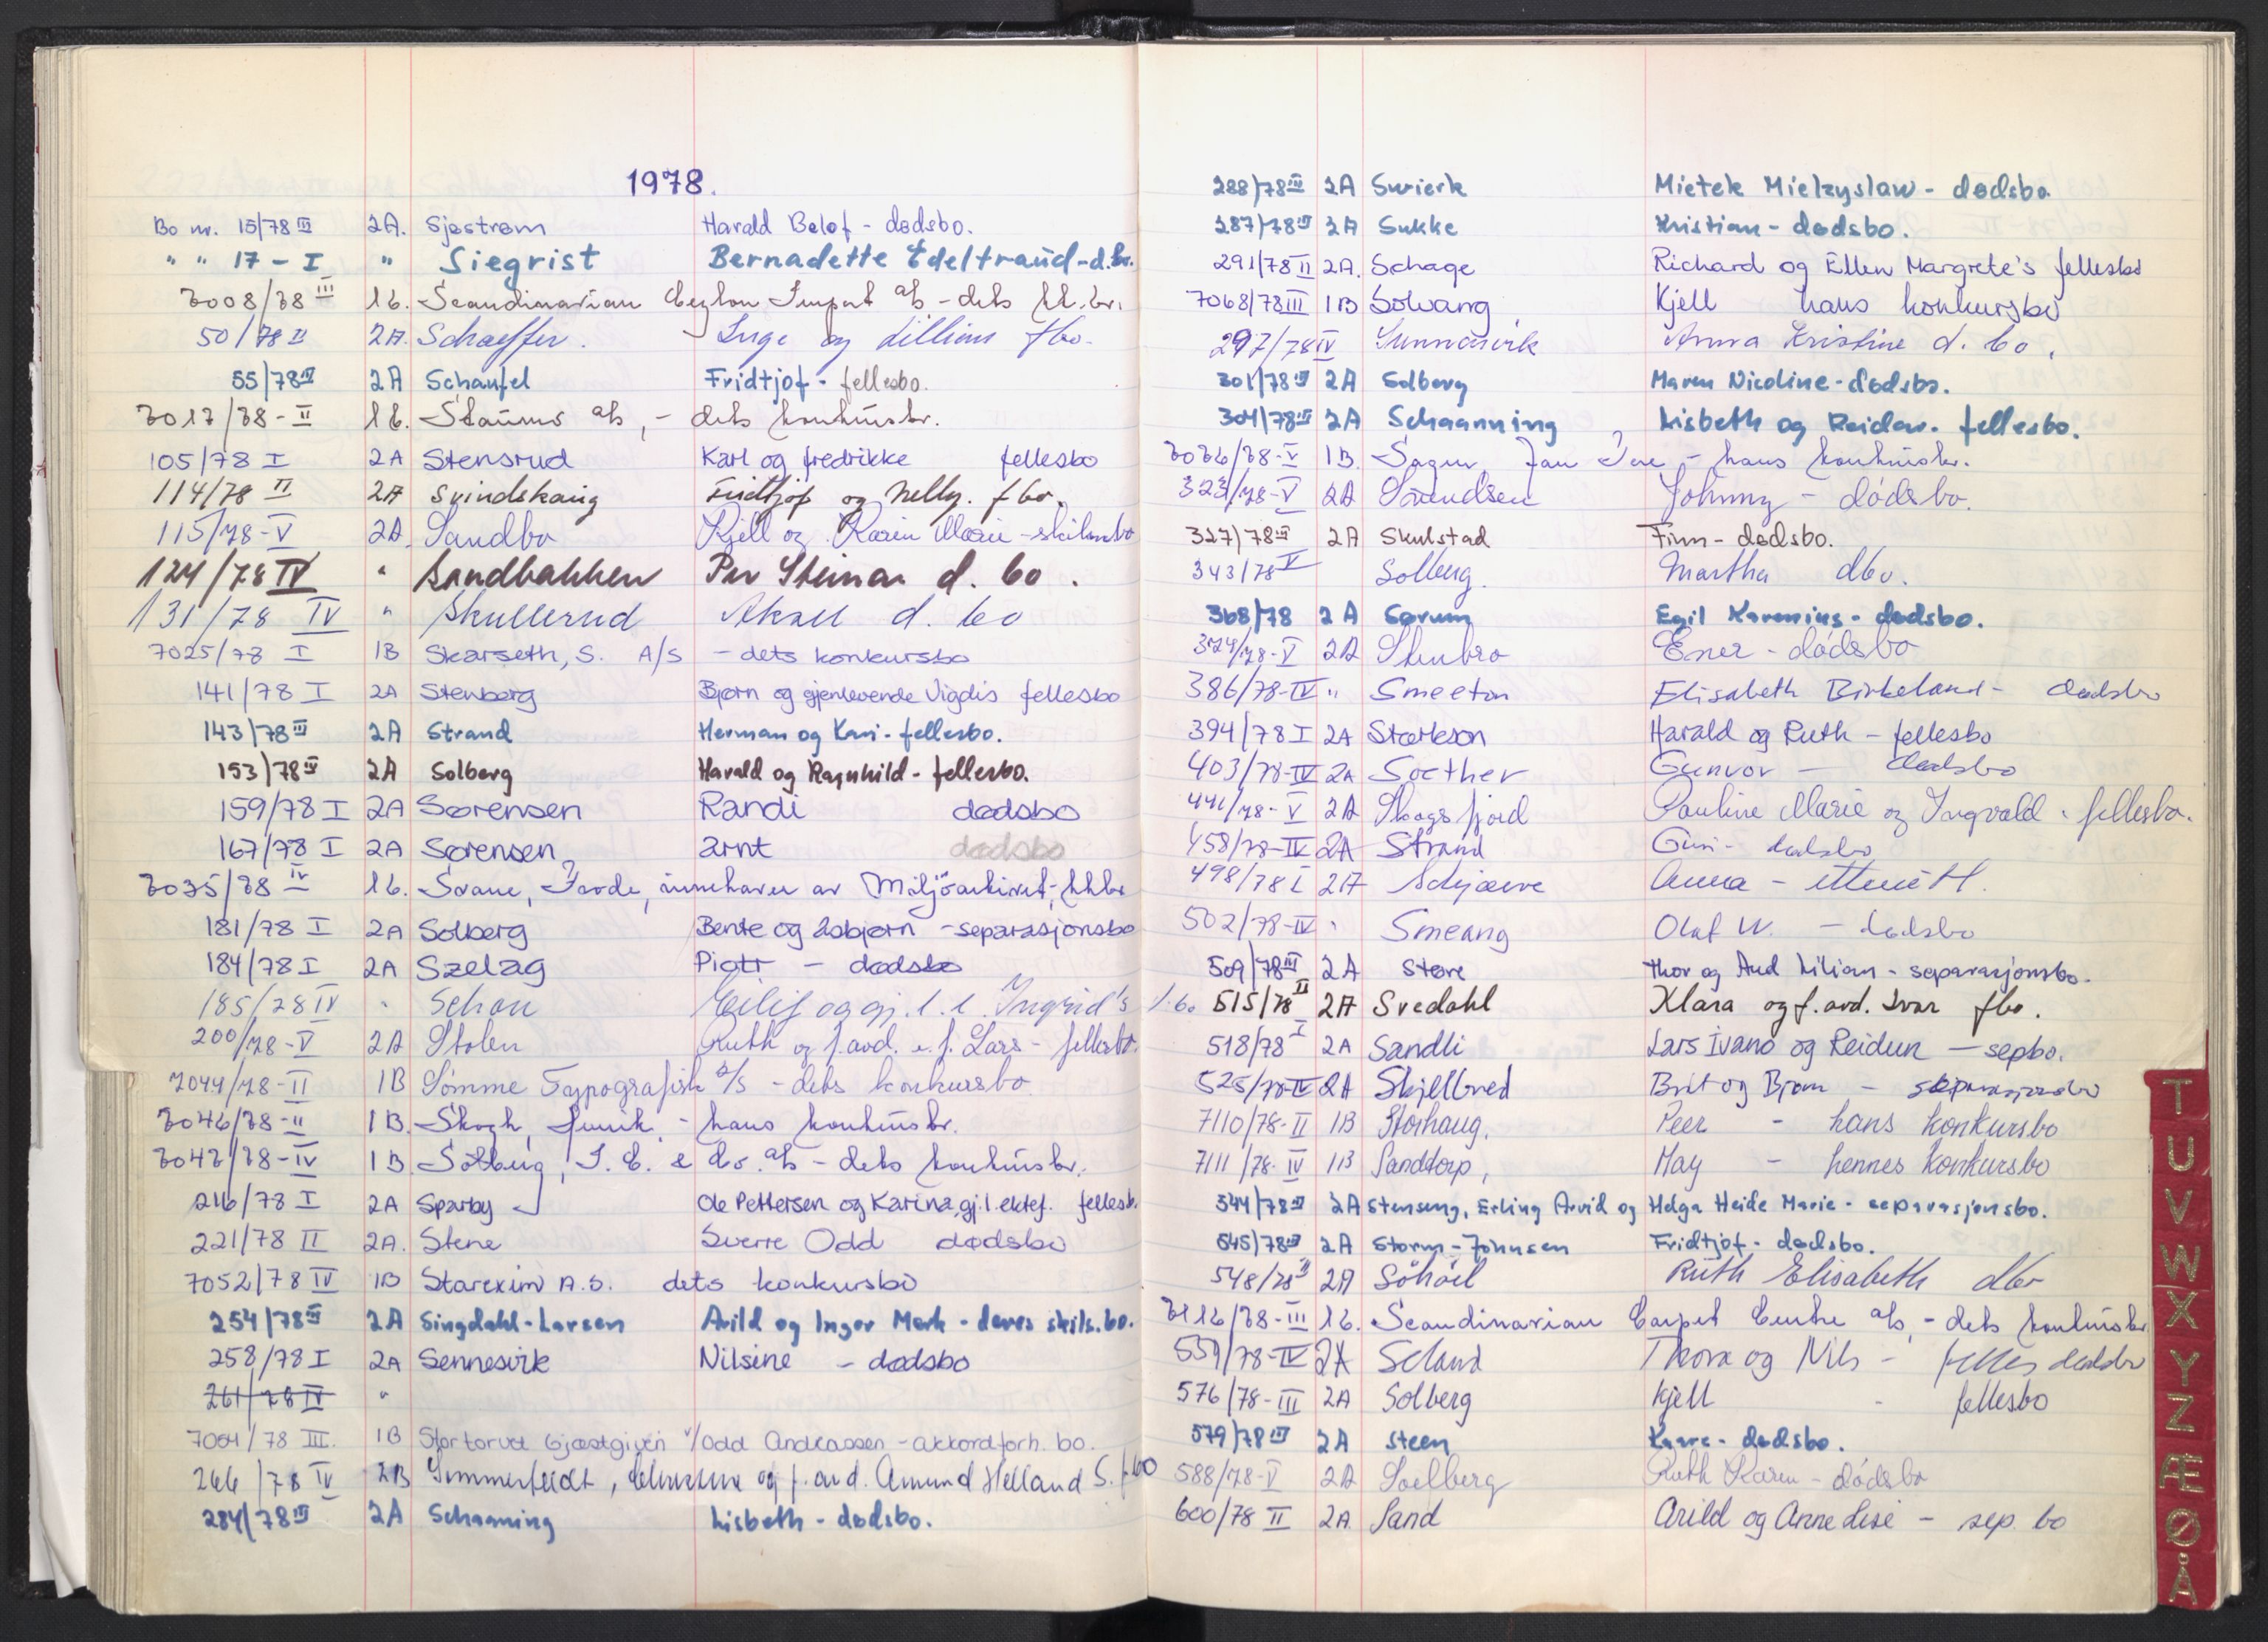 1978.
Bo nr. 15/78 III 2A. Sjøstrøm Harald Belof - dødsbo.
" " 17 - I " Siegrist Bernadette Edeltraud - d.bo.
7008/78 III 1b. Scandinavian Ceylon Import a/s - dets kk.bo.
50/78 II 2A. Schaeffer. Inge og Lillians fbo.
55/78 III 2A Schanfel Fridtjof - fellesbo.
7017/78 - II 1b. Staums a/s, - dets konkursbo.
105/78 I 2A Stensrud Karl og fredrikke fellesbo
114/78 II 2A Svindskaug Fridtjof og Nelly. fbo.
115/78-V 2A Sandbo Kjell og Karin Marie - skilsmbo
124/78 IV " Sandbakken Per Steinar d. bo.
131/78 IV " Skullerud Aksel d. bo
7025/78 I 1B Skarseth, S. A/S - dets konkursbo
141/78 I 2A Stenberg Bjørn og gjenlevende Vigdis fellesbo
143/78 III 2A Strand Herman og Kari - fellesbo.
153/78 III 2A Solberg Harald og Ragnhild - fellesbo.
159/78 I 2A Sørensen Randi dødsbo
167/78 I 2A Sørensen Arnt dødsbo
7035/78 IV 1b. Svane, Frode, innehaver av Miljøarkivet, kkbo
181/78 I 2A Solberg Bente og Asbjørn - separasjonsbo
184/78 I 2A Szelag Piotr - dødsbo
185/78 IV " Schou Eilif og gj. l. e. Ingrid's
200/78-V 2A Stolen Ruth og f.avd. e. f. Lars - fellesbo.
7044/78-II 1B Sømme Typografisk A/S - dets konkursbo
7046/78-II 1B. Skogh, - hans konkursbo.
7047/78-IV 1B Solberg, J. C. & Co. a/s - dets konkursbo.
216/78 I 2A Sparby Ole Pettersen og Karina gj.l. ektef. fellesb.
221/78 II 2A. Stene Sverre Odd dødsbo
7052/78 IV 1B Starexim A.S. dets konkursbo
254/78 III 2A Singdahl-Larsen Arild og Inger Mork - deres skils.bo.
258/78 I 2A Sennesvik Nilsine - dødsbo
261/78 IV "
7064/78 III. 1B Stortorvet Gjæstgiveri v/Odd Andreassen - akkordforh. bo.
266/78 IV 2B Sommerfeldt, og f. avd. Amund Helland S. f.bo
284/78 III 2A Schaaning Lisbeth - dødsbo.
288/78 III 2A Swierk Mietek Mielzyslaw - dødsbo.
287/78 III 2A Sukke Kristian - dødsbo.
291/78 II 2A. Schage Richard og Ellen Margrete's fellesbo
7068/78 III 1B Solvang Kjell hans konkursbo
297/78 IV Sunnarvik Anna Kristine d. bo.
301/78 III 2A Solberg Maren Nicoline - dødsbo.
304/78 III 2A Schaanning Lisbeth og Reidar. fellesbo.
7076/78-V 1B. Sagur, Jan Tore - hans konkursbo.
323/78-V 2A Svendsen Johnny - dødsbo.
327/78 III 2A Skulstad Finn - dødsbo.
343/78 V Solberg. Martha dbo.
368/78 2A Sørum Egil Karenius - dødsbo.
374/78-V 2A Stenbro Ener - dødsbo
386/78-IV " Smeeton Elisabeth Birkeland - dødsbo
394/78 I 2A Størkson Harald og Ruth - fellesbo
403/78-IV 2A Sæther Gunvor - dødsbo
441/78-V 2A Skogsfjord Pauline Marie og Ingvald - fellesbo.
458/78-IV 2A Strand Guri - dødsbo
498/78 I 2A Schjærve Anna -
502/78-IV " Smeang Olaf W. - dødsbo
509/78 III 2A Støre Thor og Aud Lilian - separasjonsbo.
515/78 II 2A Svedahl Klara og f. avd. Ivar fbo.
518/78 I 2A Sandli Lars Ivano og Reidun - sepbo.
525/78-IV 2A Skjelbred Brit og Bjørn - separasjonsbo
7110/78-II 1B Storhaug, Peer - hans konkursbo
7111/78-IV 1B Sandtorp, May - hennes konkursbo
544/78 III 2A Stenseng, Erling Arvid og Helga Heide Marie - separasjonsbo.
545/78 III 2A Storm-Johnsen Fridtjof - dødsbo.
548/78 II 2A Söhoel Ruth Elisabeth dbo
7116/78-III 1b. Scandinavian Carpet Centre a/s, - dets konkursbo
559/78-IV 2A Seland Thora og Nils - felles dødsbo
576/78-III 2A Solberg Kjell - fellesbo
579/78 III 2A Steen Kaare - dødsbo.
588/78-V 2A Soelberg Ruth Karen - dødsbo
600/78 II 2A Sand Arild og Anne Lise - sep. bo
T
U
V
W
X
Y
Z
Æ
Ø
Å